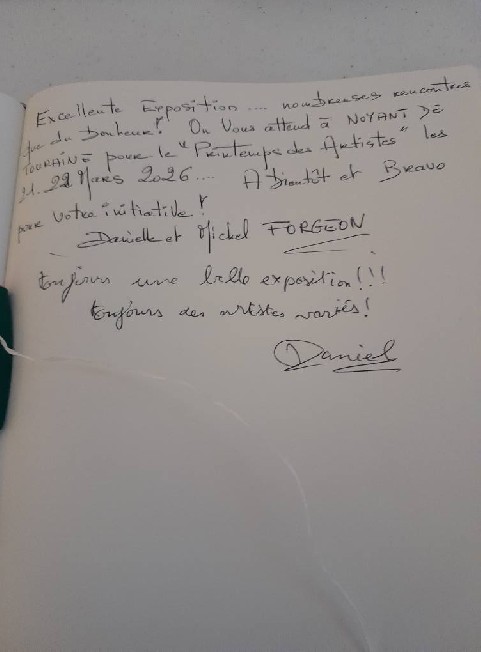 Excellente Exposition .... nombreuses rencontres
que du Bonheur! On Vous attend à NOYANT DE
TOURAINE pour le "Printemps des Artistes" les
21. 22 Mars 2026.... A Bientôt et Bravo
pour Votre initiative!
Danielle et Michel FORGEON
toujours une belle exposition!!!
toujours des artistes variés!
Daniel